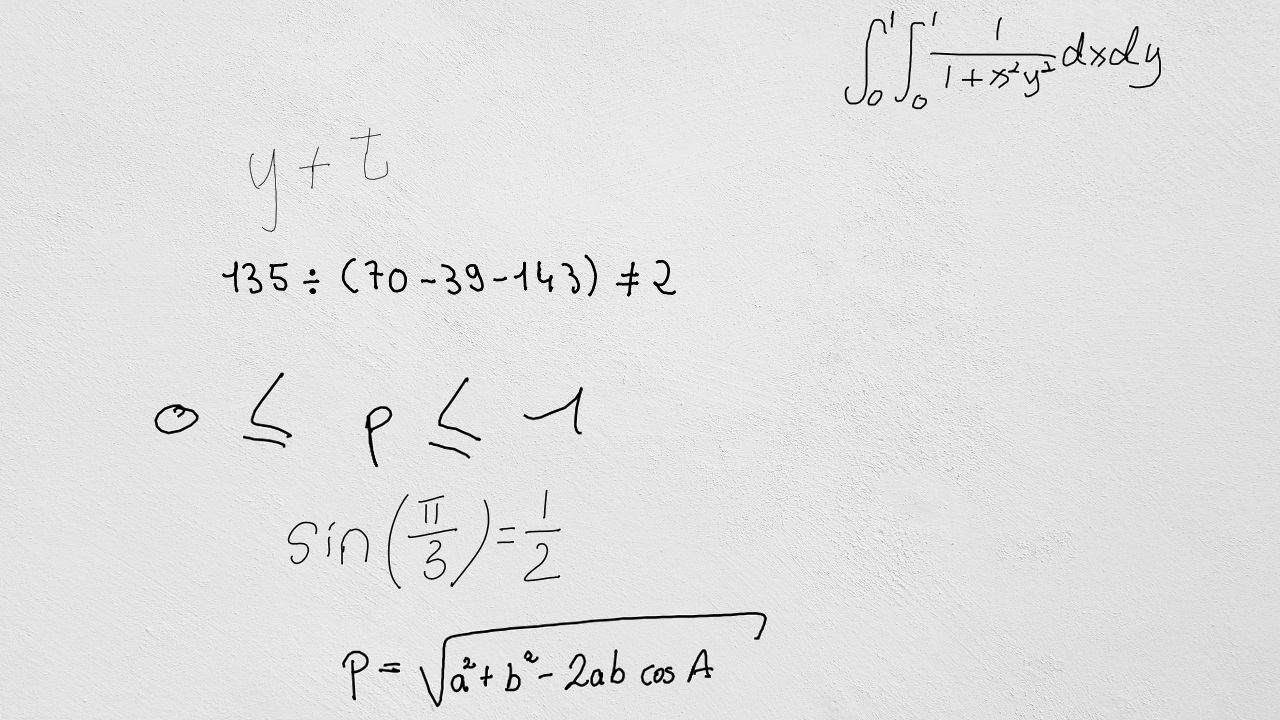 ∫₀¹∫₀¹ 1/(1+x²y²) dxdy
y + t
135 ÷ (70 - 39 - 143) ≠ 2
0 ≤ p ≤ 1
sin(π/3) = 1/2
P = √(a² + b² - 2ab cos A)